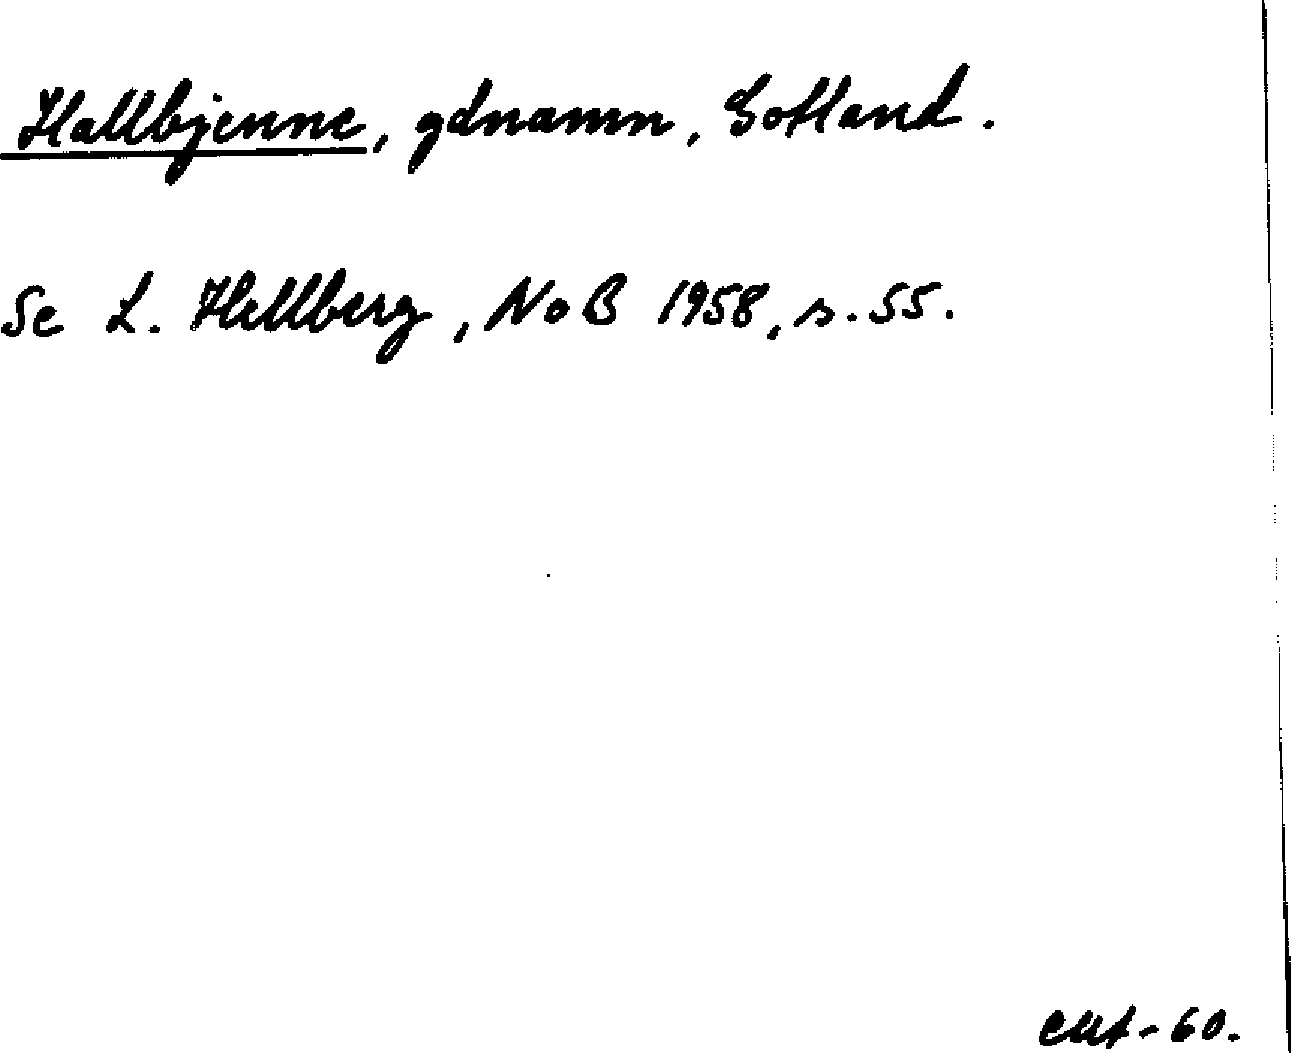 Hallbjenne, gdnamn, Gotland.
Se L. Hellberg, NoB 1958, s. 55.
-60.